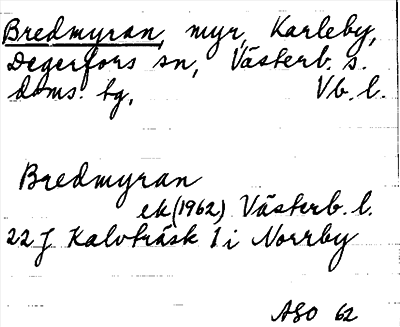 Bredmyran, myr, Karleby,
Degerfors sn, Västerb. s.
doms. tg, Vb. l.
Bredmyran
ek (1962) Västerb. l.
22 J Kalvträsk 1 i Norrby
ASO 62